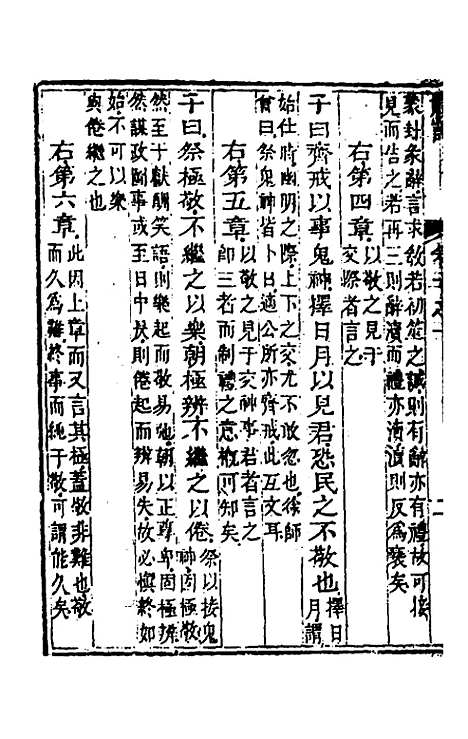 蒙卦彖辭言求教若初筮之誠則有辭亦有禮故可接
見而告之若再三則辭瀆而禮亦瀆瀆則反為褻矣
右第四章以敬之見于
交際者言之
子曰齊戒以事鬼神擇日月以見君恐民之不敬也擇日
月謂
始仕時幽明之際上下之交尤不敢忽也徐師
曾曰祭鬼神皆卜日適公所亦齊戒此互文耳
右第五章以敬之見于交神事君者言之
即三者而制禮之意概可知矣
子曰祭極敬不繼之以樂朝極辨不繼之以倦祭以接鬼
神固極敬
然至于獻酬笑語則樂起而敬易弛朝以正尊卑固極辨
然謀政圖事或至日中昃則倦起而辨易失故必慎終如
始不可以樂
與倦繼之也
右第六章此因上章而又言其極蓋敬非難也敬
而久為難終事而純于敬可謂能久矣